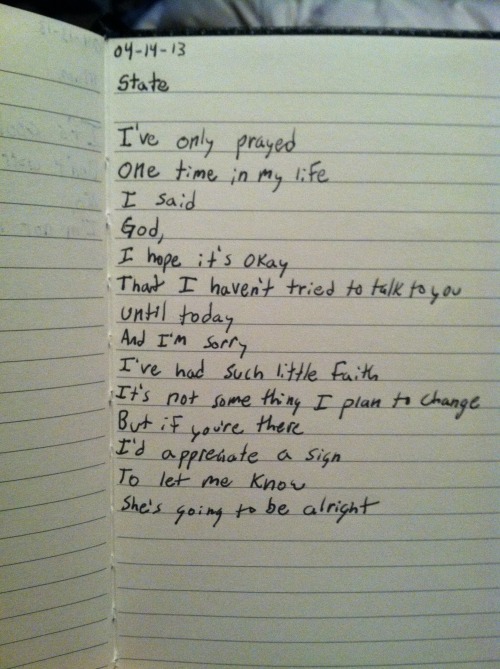 04-14-13
State
I've only prayed
one time in my life
I said
God,
I hope it's okay
That I haven't tried to talk to you
until today
And I'm sorry
I've had such little faith
It's not some thing I plan to change
But if you're there
I'd appreciate a sign
To let me know
She's going to be alright